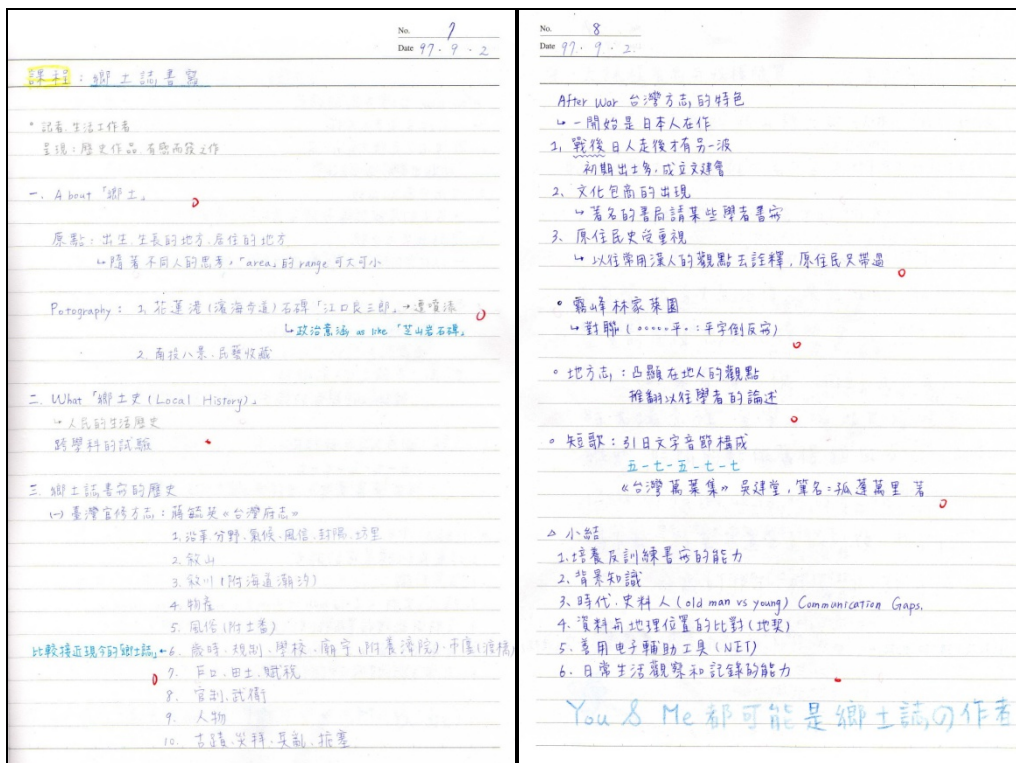 No. 7
Date 97.9.2
課程：鄉土誌書寫
* 記者.生活工作者
呈現：歷史作品.有感而發之作
一. About「鄉土」
原點：出生.生長的地方.居住的地方
↳ 隨著不同人的思考，「area」的 range 可大可小
Potography： 1. 花蓮港（濱海步道）石碑「江口良三郎」→遭噴漆
↳ 政治意涵 as like 「芝山岩石碑」
2. 南投八景.民藝收藏
二. What「鄉土史(Local History)」
↳ 人民的生活歷史
跨學科的試驗
三. 鄉土誌書寫的歷史
(一) 臺灣官修方志：蔣毓英《台灣府志》
1. 沿革.分野.氣候.風信.封隅.坊里
2. 敘山
3. 敘川（附海道潮汐）
4. 物產
5. 風俗（附土番）
比較接近現今的「鄉土誌」← 6. 歲時、規制、學校、廟宇（附養濟院）、市廛（津橋）
7. 戶口.田土.賦稅
8. 官制.武衛
9. 人物
10. 古蹟、災祥、兵亂、扼塞
No. 8
Date 97.9.2.
After War 台灣方志的特色
↳ 一開始是日本人在作
1. 戰後日人走後才有另一波
初期出土多，成立文建會
2. 文化包商的出現
↳ 著名的書局請某些學者書寫
3. 原住民史受重視
↳ 以往常用漢人的觀點去詮釋，原住民只帶過
• 霧峰林家萊園
↳ 對聯（○○○○○平。：平字倒反寫）
• 地方志：凸顯在地人的觀點
推翻以往學者的論述
• 短歌：31日文字音節構成
五-七-五-七-七
《台灣萬葉集》 吳建堂，筆名=孤蓬萬里 著
△ 小結
1. 培養反訓練書寫的能力
2. 背景知識
3. 時代.史料人(old man vs young) Communication Gaps.
4. 資料與地理位置的比對(地契)
5. 善用电子輔助工具(NET)
6. 日常生活觀察和記錄的能力
You & Me 都可能是鄉土誌の作者